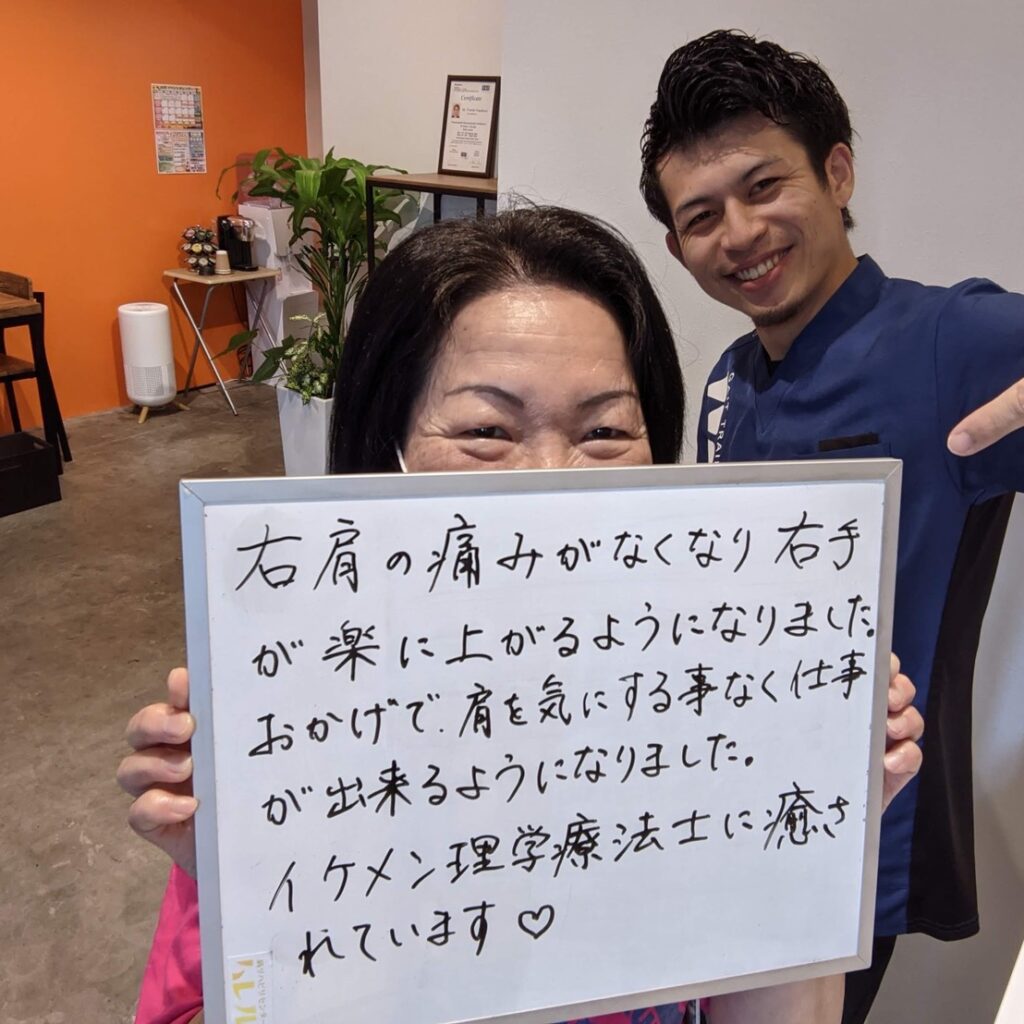 Certificate
右肩の痛みがなくなり右手
が楽に上がるようになりました。
おかげで、肩を気にする事なく仕事
が出来るようになりました。
イケメン理学療法士に癒さ
れています♡